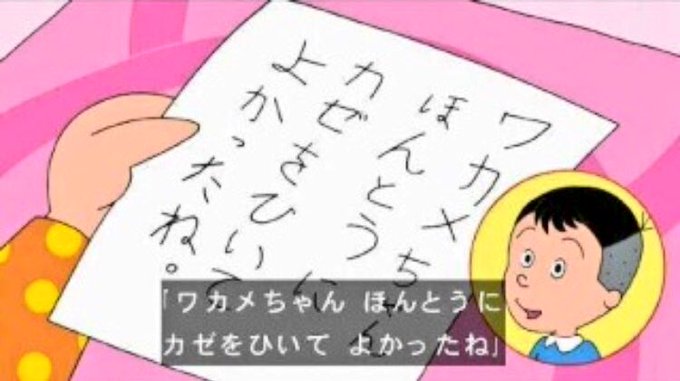 ワカメちゃん
ほんとうに
カゼをひいて
よかったね。
「ワカメちゃん ほんとうに
カゼをひいて よかったね」